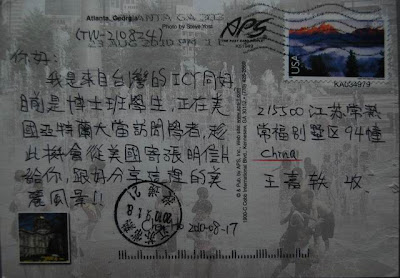 Atlanta, Georgia
Photo by Steve Vest
(TW-210824)
ATLANTA GA 303
23 AUG 2010 PM
APS
USA
KAD34979
你好:
我是來自台灣的ICT同好
目前是博士班學生,正在美
國亞特蘭大當訪問學者,趁
此機會從美國寄張明信片
給你,跟妳分享這裡的美
麗風景!!
2010-08-17
215500 江苏常熟
常福别墅区94幢
China
王嘉轶 收